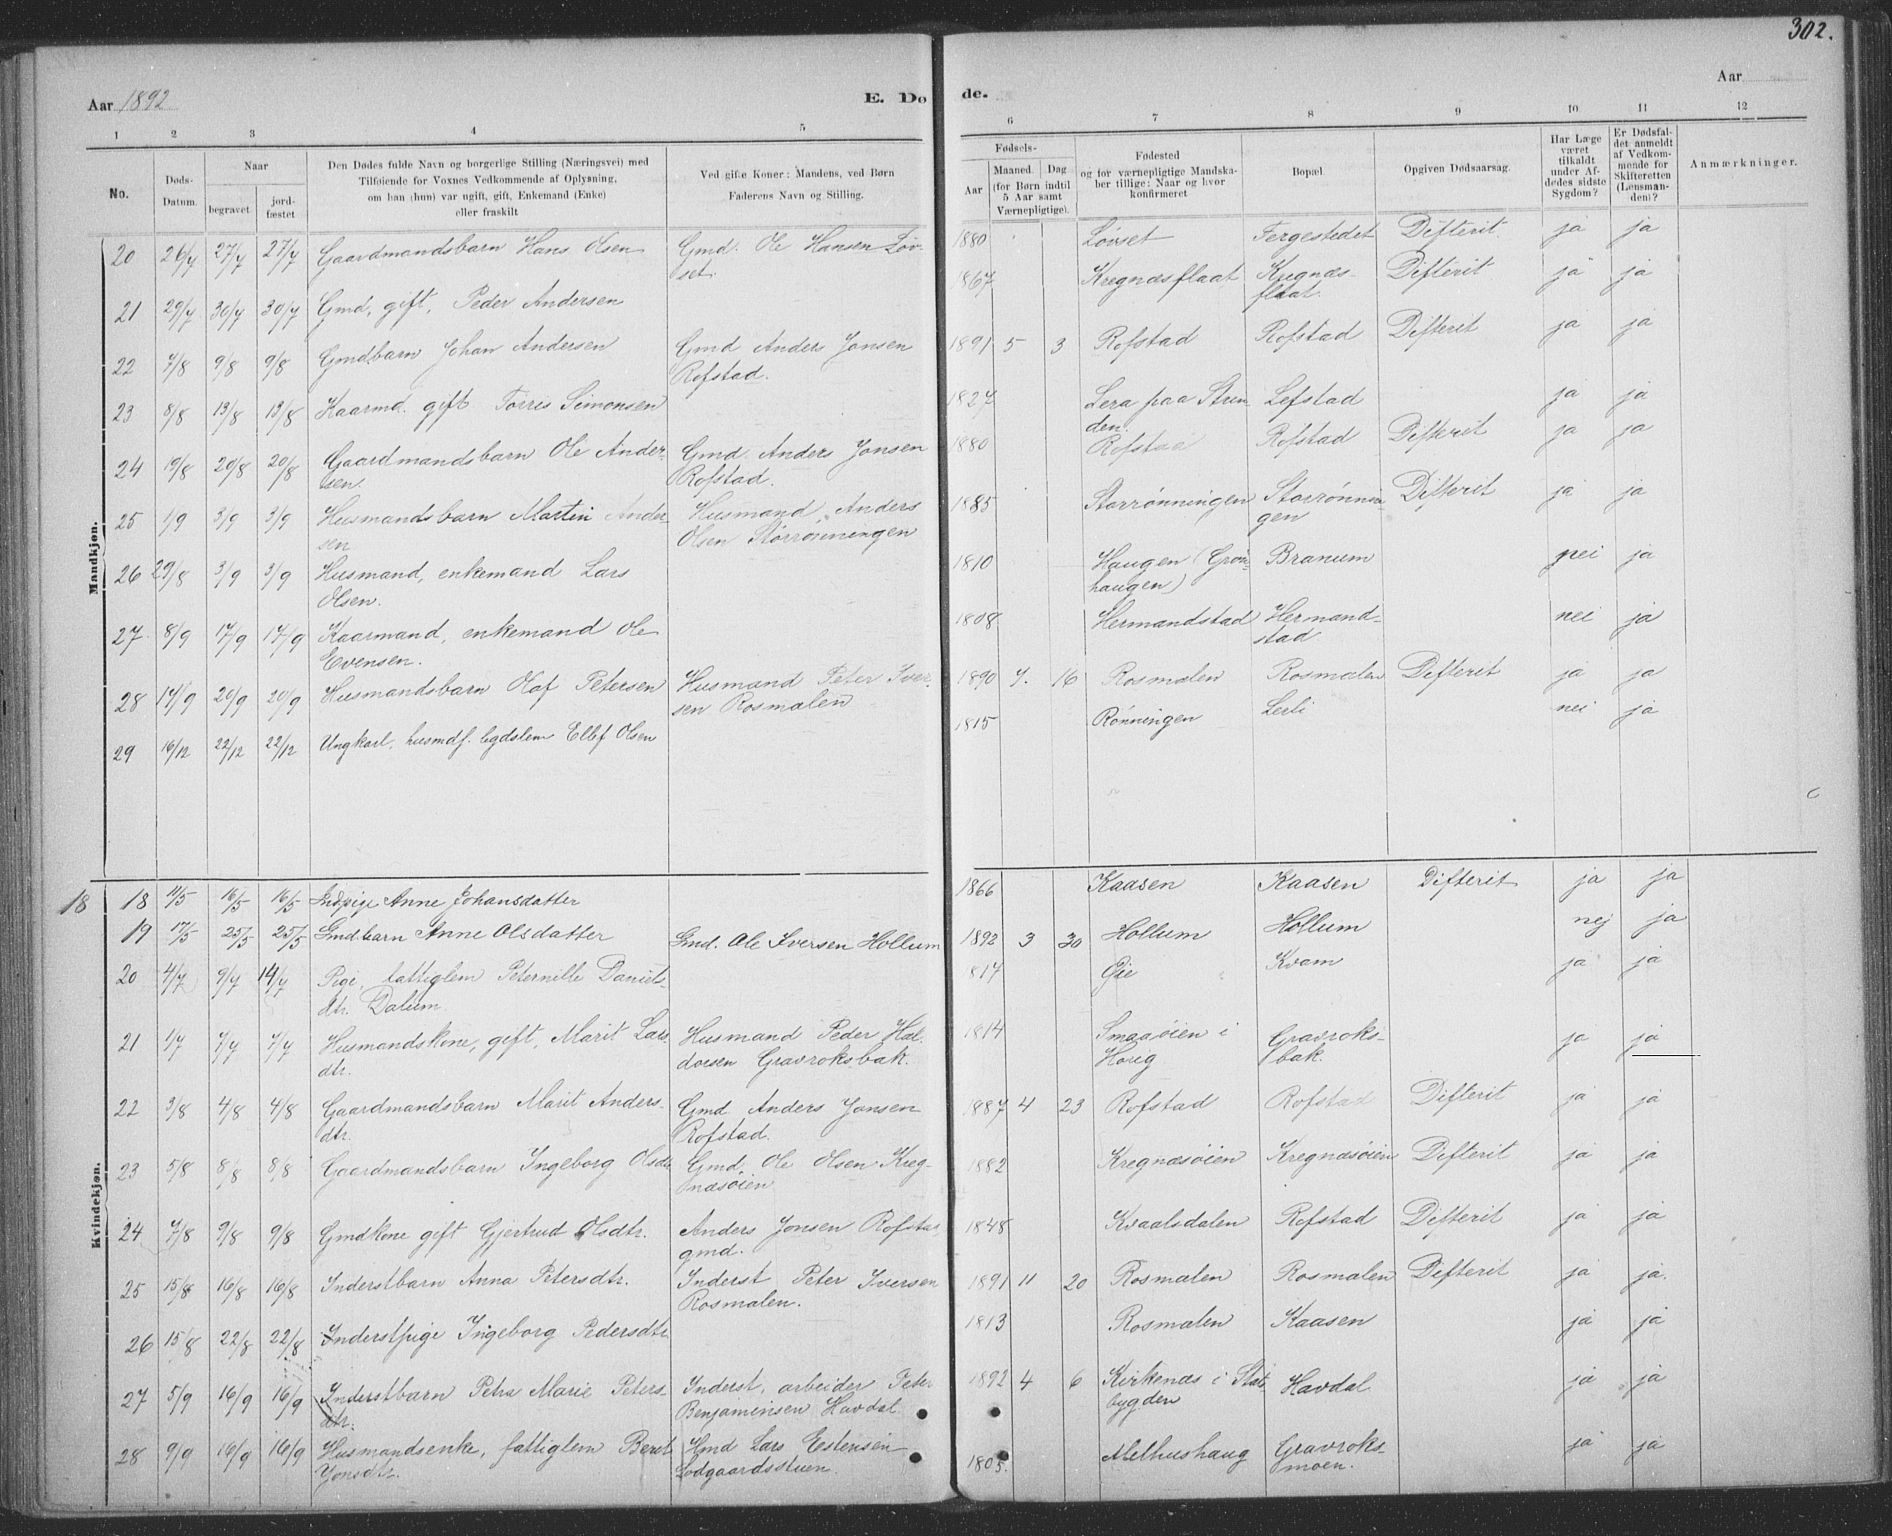 302.
Aar 1892
E. Døde.
Aar
1 2 3 4 5 6 7 8 9 10 11 12
No.
Døds-Datum.
Naar
begravet
jordfæstet
Den Dødes fulde Navn og borgerlige Stilling (Næringsvei) med
Tilføiende for Voxnes Vedkommende af Oplysning,
om han (hun) var ugift, gift, Enkemand (Enke)
eller fraskilt
Ved gifte Koner: Mandens, ved Børn
Faderens Navn og Stilling.
Fødsels-
Aar
Maaned. Dag
(for Børn indtil
5 Aar samt
Værnepligtige).
Fødested
og for værnepligtige Mandska-
ber tillige: Naar og hvor
konfirmeret
Bopæl
Opgiven Dødsaarsag.
Har Læge
været
tilkaldt
under Af-
dødes sidste
Sygdom?
Er Dødsfal-
det anmeldt
af Vedkom-
mende for
Skifteretten
(Lensman-
den)?
Anmærkninger.
Mandkjøn.
20 26/7 27/7 27/7 Gaardmandsbarn Hans Olsen Gmd. Ole Hansen Løv- 1880 Løvset Fergestedet Difterit. ja ja
set.
21 29/7 30/7 30/7 Gmd, gift, Peder Andersen 1867 Kregnæsflaat Kregnæs- Difterit ja ja
flaat.
22 7/8 9/8 9/8 Gmdbarn Johan Andersen Gmd Anders Jonsen 1891 5 3 Rofstad Rofstad Difterit ja ja
Rofstad.
23 8/8 13/8 13/8 Kaarmd. gift Torris Simonsen 1827 Lera paa Strin- Lefstad ja ja
den.
24 19/8 20/8 20/8 Gaardmandsbarn Ole Ander- Gmd Anders Jonsen 1880 Rofstad Rofstad Difterit ja ja
sen. Rofstad.
25 1/9 3/9 3/9 Husmandsbarn Martin Ander- Husmand, Anders 1885 Storrønningen Storrønnin- Difterit ja ja
sen Olsen Størrønningen gen
26 29/8 3/9 3/9 Husmand, enkemand Lars 1810 Haugen (Grøn- Branum nei ja
Olsen. haugen)
27 8/9 17/9 17/9 Kaarmand, enkemand Ole 1808 Hermandstad Hermand- nei ja
Evensen. stad
28 14/9 20/9 20/9 Husmandsbarn Olaf Petersen Husmand Peter Iver- 1890 7. 16 Rosmælen Rosmælen Difterit ja ja
sen Rosmælen
29 16/12 22/12 22/12 Ungkarl, husmdf. legdslem Ellef Olsen 1815 Rønningen Lerli nei ja
Kvindekjøn.
18 18 11/5 16/5 16/5 Indpige Anne Johansdatter 1866 Kaasen Kaasen Difterit ja ja
19 17/5 25/5 25/5 Gmdbarn Anne Olsdatter Gmd. Ole Iversen Hollum 1892 3 30 Hollum Hollum nej ja
20 4/7 9/7 14/7 Pige, fattiglem Peternille Daniels- 1817 Øie Kvam ja ja
dtr. Dalum
21 1/7 7/7 7/7 Husmandskone, gift, Marit Lars- Husmand Peder Hal- 1814 Smaaøien i Gravroks- ja ja
dtr. dorsen Gravroksbak. Høug bak.
22 3/8 4/8 4/8 Gaardmandsbarn Marit Anders- Gmd Anders Jonsen 1887 4 23 Rofstad Rofstad Difterit ja ja
dtr. Rofstad.
23 5/8 8/8 8/8 Gaardmandsbarn Ingeborg Olsdtr Gmd, Ole Olsen Kreg- 1882 Kregnæsøien Kregnæsøien Difterit ja ja
næsøien
24 7/8 9/8 9/8 Gmdkone gift Gjertrud Olsdtr. Anders Jonsen Rofstad 1848 Kvaalsdalen Rofstad Difterit ja ja
gmd.
25 15/8 16/8 16/8 Inderstbarn Anna Petersdtr. Inderst Peter Iversen 1891 11 20 Rosmælen Rosmælen Difterit ja ja.
Rosmælen.
26 15/8 22/8 22/8 Inderstpige Ingeborg Pedersdtr 1813 Rosmælen Kaasen ja ja
27 5/9 16/9 16/9 Inderstbarn Petra Marie Peters- Inderst, arbeider Peter 1892 4 6 Kirkenæs i Stats- Havdal ja ja
dtr. Benjaminsen Havdal bygden
28 9/9 16/9 16/9 Husmandsenke, fattiglem Berit Hmd Lars Estensen 1805. Melhushaug Gravroks- ja ja
Jonsdtr. Lodgaardsstuen. moen.